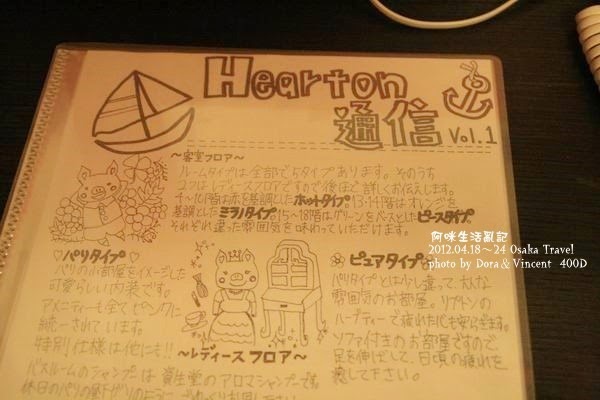 Hearton
通信 Vol.1
〜客室フロア〜
ルームタイプは全部で5タイプあります。そのうち
2つはレディースフロアですので後ほど詳しくお伝えします。
4〜10階はお茶を基調としたホットタイプ、13・14階はオレンジを
基調としたミラノタイプ、15〜18階はグリーンをベースとしたピースタイプ。
それぞれ違った雰囲気を味わっていただけます。
♡パリタイプ♡
パリの小部屋をイメージした
可愛らしい内装です。
アメニティーも全てピンクに
統一されています。
特別仕様は他にも!!
〜レディースフロア〜
バスルームのシャンプーは資生堂のアロマシャンプーです
ピュアタイプ
パリタイプとは少し違って、大人な
雰囲気のお部屋。リプトンの
ハーブティーで疲れた心も安らぎます。
ソファ付きのお部屋ですので
足を伸ばして、日頃の疲れを
癒して下さい。
阿咪生活亂記
2012.04.18～24 Osaka Travel
photo by Dora & Vincent 400D